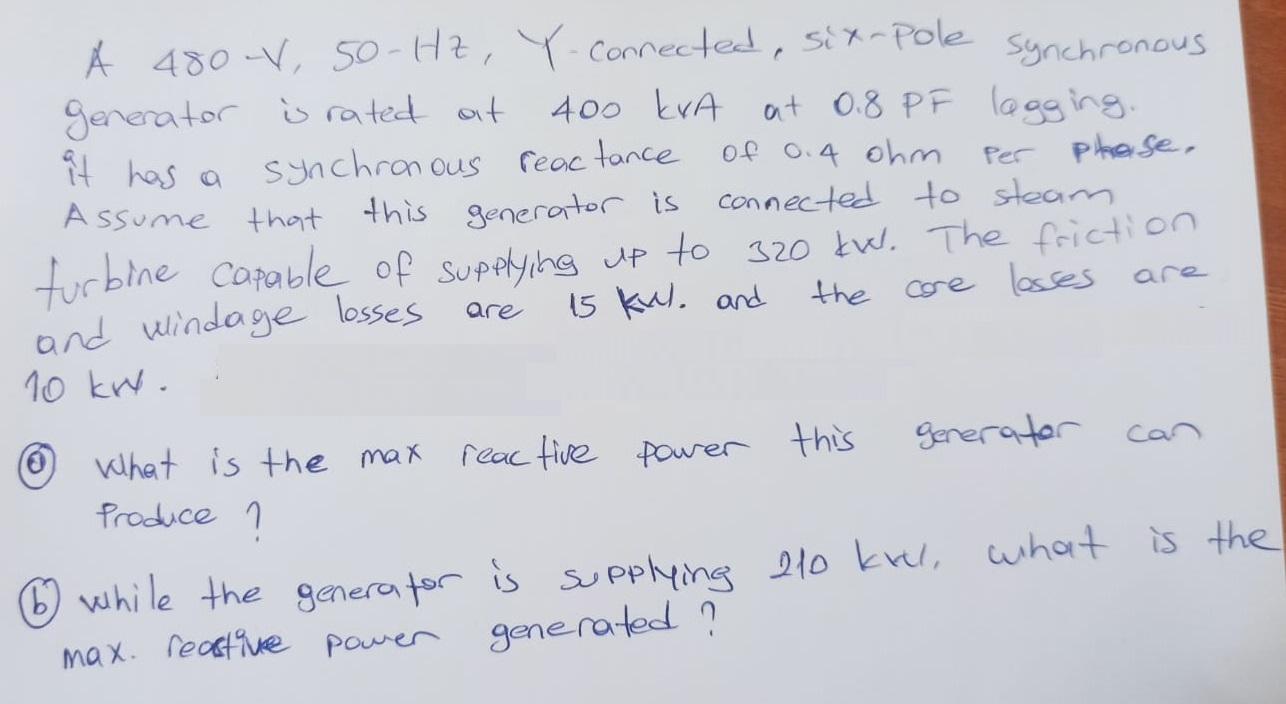 A 480-V, 50-Hz, Y-connected, six-pole synchronous
generator is rated at 400 kVA at 0.8 PF lagging.
it has a synchronous reactance of 0.4 ohm per phase.
Assume that this generator is connected to steam
turbine capable of supplying up to 320 kW. The friction
and windage losses are 15 kW. and the core losses are
10 kW.
(a) What is the max reactive power this generator can
Produce ?
(b) while the generator is supplying 210 kW, what is the
max. reactive power generated ?